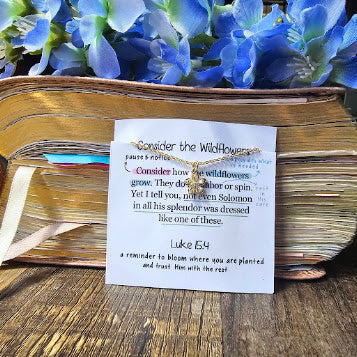 Consider the Wildflowers
pause & notice
Consider how the wildflowers
grow. They do labor or spin.
Yet I tell you, not even Solomon
in all his splendor was dressed
like one of these.
Luke 15:4
a reminder to bloom where you are planted
and trust Him with the rest